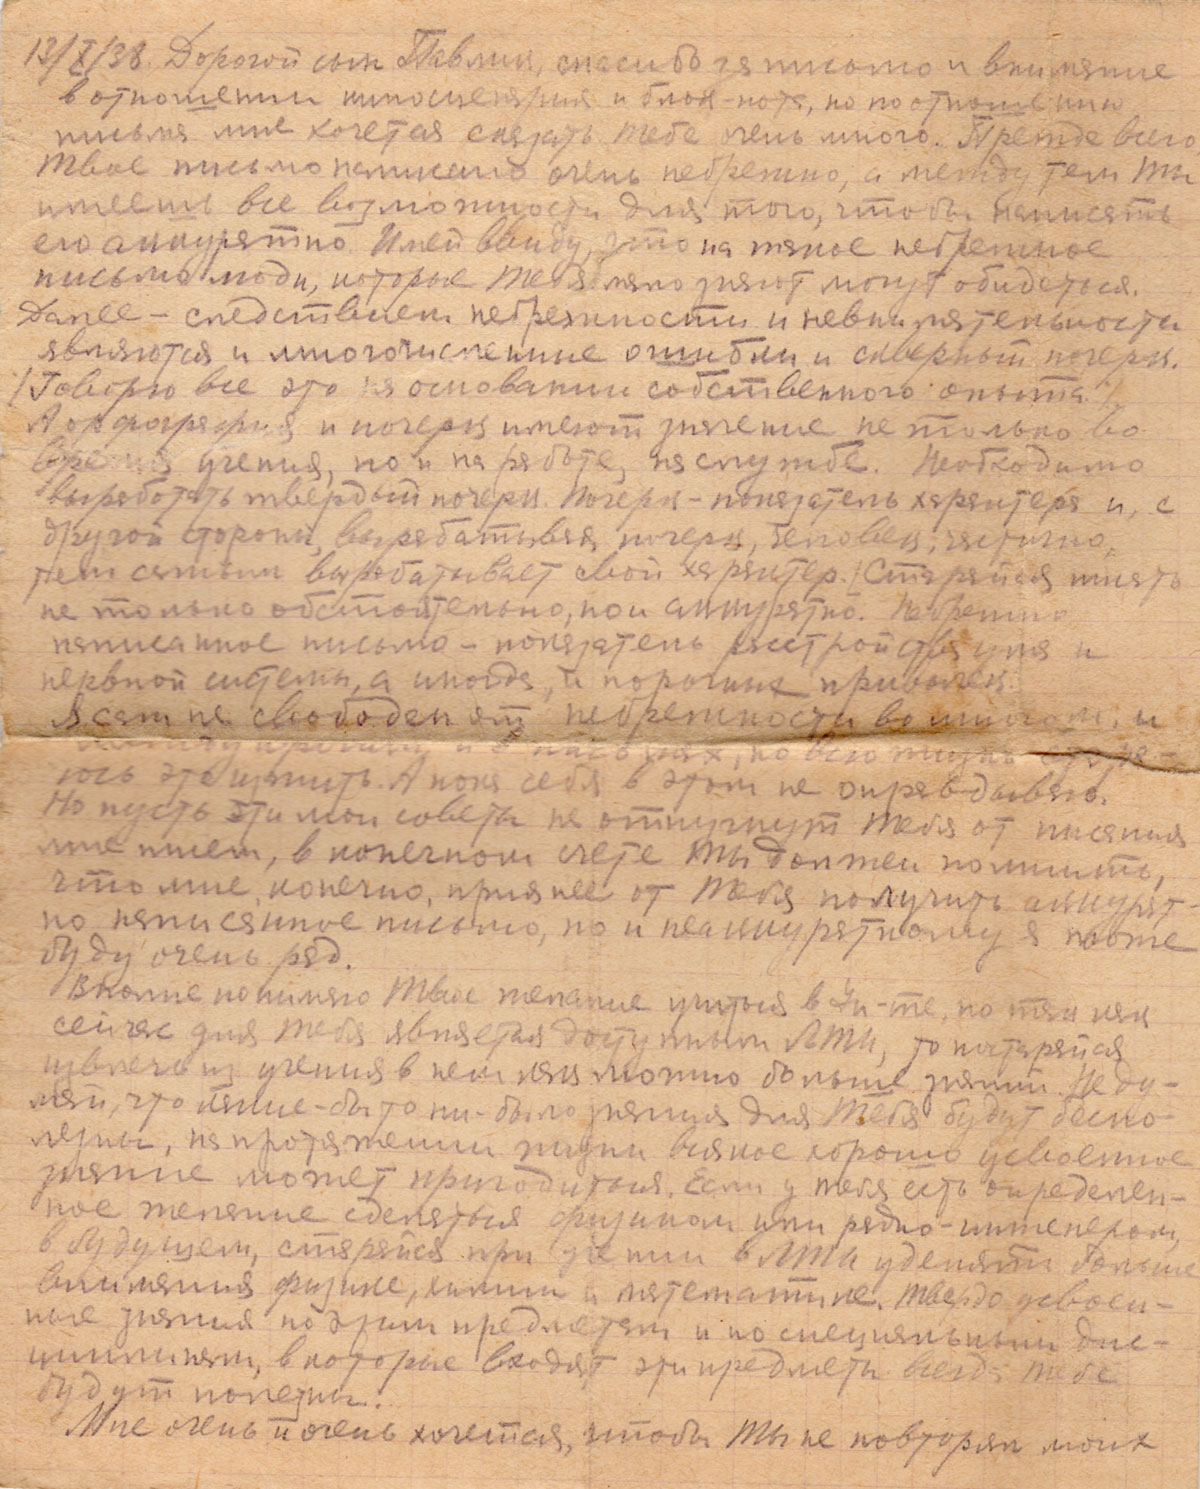 13/X/38. Дорогой сын Павлик, спасибо за письмо и внимание
в отношении киносценария и блок-нота, но по отношению
письма мне хочется сказать тебе очень много. Прежде всего
твое письмо написано очень небрежно, а между тем ты
имеешь все возможности для того, чтобы написать
его аккуратно. Имей ввиду, что на такое небрежное
письмо люди, которые тебя мало знают могут обидеться.
Далее – следствием небрежности и невнимательности
являются и многочисленные ошибки и скверный почерк.
/Говорю все это на основании собственного опыта/.
А орфография и почерк имеют значение не только во
время учения, но и на работе, на службе. Необходимо
выработать твердый почерк. Почерк – показатель характера и, с
другой стороны, вырабатывая почерк, человек, частично,
тем самым вырабатывает свой характер. Старайся писать
не только обстоятельно, но и аккуратно. Небрежно
написанное письмо – показатель расстройства ума и
нервной системы, а иногда, и порочных привычек.
Я сам не свободен от небрежности во многом, и
между прочим и в письмах, но всю жизнь стара-
юсь это изжить. А пока себя в этом не оправдываю.
Но пусть эти мои советы не отпугнут тебя от писания
мне писем, в конечном счете ты должен помнить,
что мне, конечно, приятнее от тебя получить аккурат-
но написанное письмо, но и неаккуратному я тоже
буду очень рад.
Вполне понимаю твое желание учиться в Ин-те, но так как
сейчас для тебя является доступным ЛТИ, то постарайся
извлечь из учения в нем как можно больше знаний. Не ду-
май, что какие-бы то ни-было знания для тебя будут беспо-
лезны, на протяжении жизни всякое хорошо усвоенное
знание может пригодиться. Если у тебя есть определен-
ное желание сделаться физиком или радио-инженером,
в будущем, старайся при учении в ЛТИ уделять больше
внимания физике, химии и математике. Твердо усвоен-
ные знания по этим предметам и по специальным дис-
циплинам, в которые входят эти предметы всегда тебе
будут полезны.
Мне очень и очень хочется, чтобы ты не повторял моих